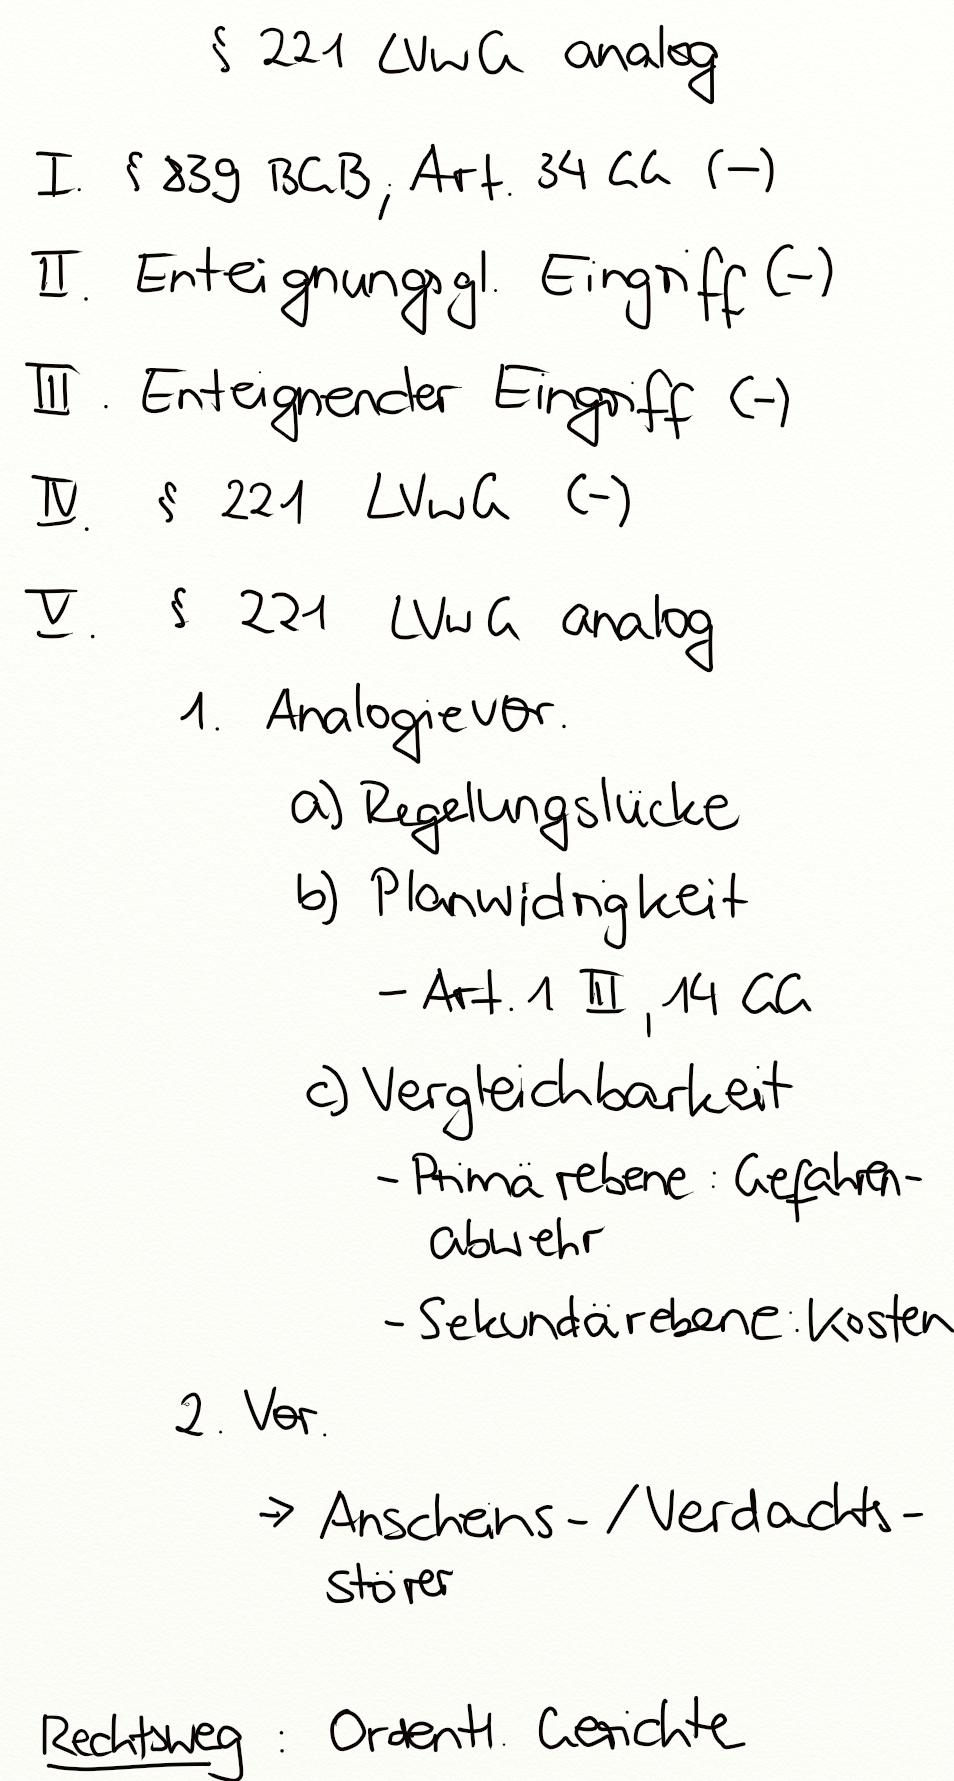 § 221 LVwG analog
I. § 839 BGB, Art. 34 GG (-)
II. Enteignungsgl. Eingriff (-)
III. Enteignender Eingriff (-)
IV. § 221 LVwG (-)
V. § 221 LVwG analog
1. Analogievor.
a) Regelungslücke
b) Planwidrigkeit
- Art. 1 III, 14 GG
c) Vergleichbarkeit
- Primärebene: Gefahren-
abwehr
- Sekundärebene: Kosten
2. Vor.
→ Anscheins-/Verdachts-
störer
Rechtsweg: Ordentl. Gerichte